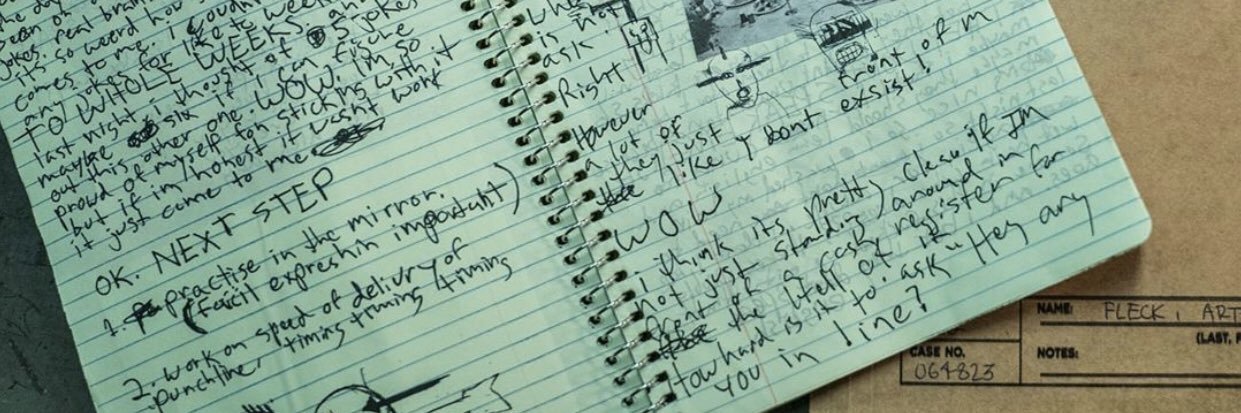 the day
been on
jokes. real brain
its so weird how
comes to me. I coudnt
any jokes for like to weeks
TO WHOLE WEEKS. and
last night i thought of 5 jokes
maybe six if i can figure
out this other one. WOW. im so
prowd of myself for sticking with it
but if im honest it wasnt work
it just came to me
OK. NEXT STEP
1. practise in the mirror.
(facil expreshin important)
2. work on speed of delivry of
punchline timing timing timing
is not
ask.
Right
However
a lot of
they just
like I dont exsist!
front of m
WOW
i think its pretty clear if IM
not just standing around in
frent of a cash register for
the Hell of it.
How hard is it to ask "Hey any
you in line?
NAME: FLECK, ART
(LAST, F
CASE NO.
064823
NOTES: